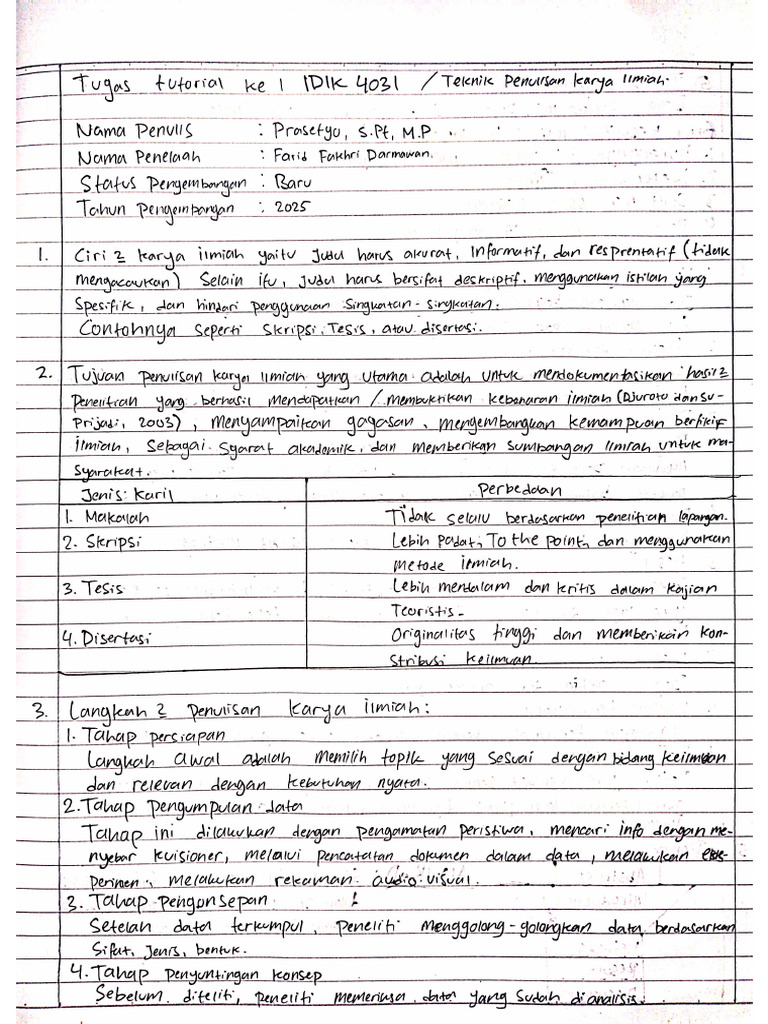 Tugas tutorial ke 1 IDIK 4031 / Teknik Penulisan Karya Ilmiah.
Nama Penulis : Prasetyo, S.Pt, M.P
Nama Penelaah : Farid Fakhri Darmawan.
Status Pengembangan : Baru
Tahun Pengembangan : 2025
1. Ciri 2 karya ilmiah yaitu Judul harus akurat, Informatif, dan resprentatif (tidak
mengacaukan) Selain itu, Judul harus bersifat deskriptif, menggunakan istilah yang
Spesifik, dan hindari penggunaan Singkatan-singkatan.
Contohnya seperti Skripsi, Tesis, atau disertasi.
2. Tujuan penulisan karya ilmiah yang utama adalah untuk mendokumentasikan hasil2
Penelitian yang berhasil mendapatkan / membuktikan kebenaran ilmiah (Djuroto dan Su-
Prijadi, 2003), menyampaikan gagasan, mengembangkan kemampuan berfikir
ilmiah, Sebagai Syarat akademik, dan memberikan sumbangan ilmiah untuk ma-
syarakat.
Jenis Karil Perbedaan
1. Makalah Tidak selalu berdasarkan penelitian lapangan.
2. Skripsi Lebih Padat, To the point, dan menggunakan
metode ilmiah.
3. Tesis Lebih mendalam dan kritis dalam kajian
Teoristis.
4. Disertasi Originalitas tinggi dan memberikan kon-
stribusi keilmuan
3. Langkah 2 penulisan karya ilmiah:
1. Tahap persiapan
Langkah awal adalah memilih topik yang sesuai dengan bidang keilmuan
dan relevan dengan kebutuhan nyata.
2. Tahap Pengumpulan data
Tahap ini dilakukan dengan pengamatan peristiwa, mencari info dengan me-
nyebar kuisioner, melalui pencatatan dokumen dalam data, melakukan eks-
perimen, melakukan rekaman audio visual.
3. Tahap Pengonsepan
Setelah data terkumpul, peneliti menggolong-golongkan data berdasarkan
Sifat, Jenis, bentuk.
4. Tahap penyuntingan konsep
Sebelum diteliti, peneliti memeriksa data yang sudah dianalisis.